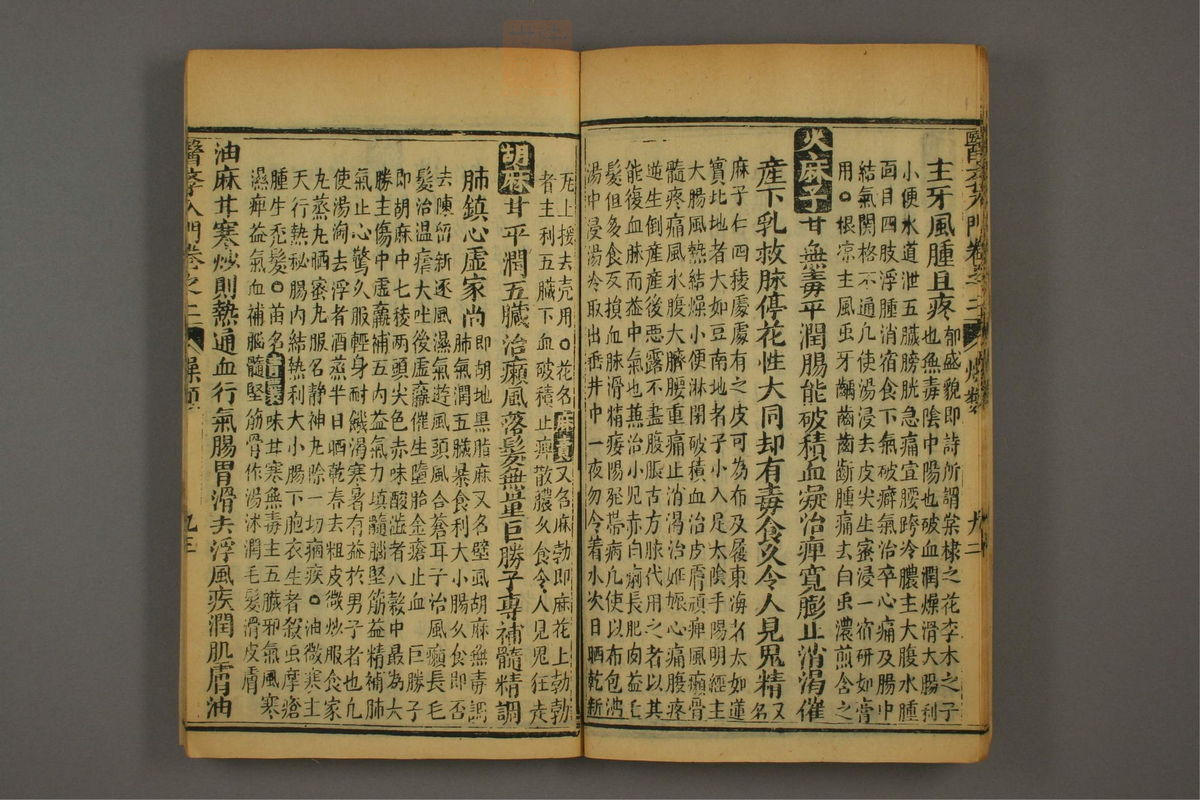 醫學入門卷之二 燥類 九二
主牙風腫且疼郁盛貌即詩所謂棠棣之花李木之子
也無毒陰中陽也破血潤燥滑大腸利
小便水道泄五臟膀胱急痛宣腰胯冷膿主大腹水腫
面目四肢浮腫消宿食下氣破癖氣治卒心痛及腸中
結氣關格不通凡使湯浸去皮尖生蜜浸一宿研如膏
用○根凉主風虫牙齲齒齒斷腫痛去白虫濃煎含之
火麻子甘無毒平潤腸能破積血凝治痺寬膨止消渴催
產下乳救脉停花性大同却有毒食久令人見鬼精又名
麻子仁四稜處處有之皮可為布及履東海者大如蓮
實北地者大如豆南地者子小入足太陰手陽明經主
大腸風熱結燥小便淋閉破積血治皮膚頑痺風癲骨
髓疼痛風水腹大臍腰重痛止消渴治姙娠心痛腹疼
逆生倒產產後惡露不盡腹脹古方脹代用之者以其
能復血脉而益中氣也兼治小兒赤白痢長肥肉益毛
髮但多食反損血脉滑精痿陽發帶病凡使以布包沸
湯中浸湯冷取出垂井中一夜勿令着水次日晒乾新
瓦上挼去壳用○花名麻蕡又名麻勃即麻花上勃勃
者主利五臟下血破積止痺散膿久食令人見鬼狂走
胡麻甘平潤五臟治癩風落髮無並巨勝子專補髓精調
肺鎮心虛家尚即胡地黑脂麻又名壁虱胡麻無毒調
肺氣潤五臟暴食利大小腸久食即否
去陳留新逐風濕氣遊風頭風合蒼耳子治風癩長毛
髮治溫瘧大吐後虛羸催生墮胎金瘡止血 巨勝子
即胡麻中七稜兩頭尖色赤味酸澁者八穀中最為大
勝主傷中虛羸補五內益氣力填髓腦堅筋益精補肺
氣止心驚久服輕身耐饑渴寒暑有益於男子者也凡
使湯淘去浮者酒蒸半日晒乾舂去粗皮微炒服食家
九蒸九晒蜜丸服名静神丸除一切痼疾○油微寒主
天行熱秘腸內結熱利大小腸下胞衣生者殺虫摩瘡
腫生禿髮○苗名青蘘味甘寒無毒主五臟邪氣風寒
濕痺益氣血補腦髓堅筋骨作湯沐潤毛髮滑皮膚
油麻甘寒炒則熱通血行氣腸胃滑去浮風疾潤肌膚油
醫學入門卷之二 燥類 九三